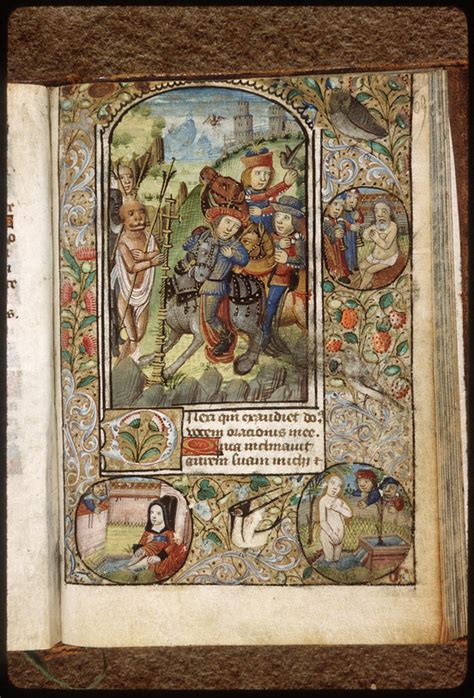 Dilexi qm exaudiet do
vocem orationis mee.
Quia inclinauit
aurem suam michi